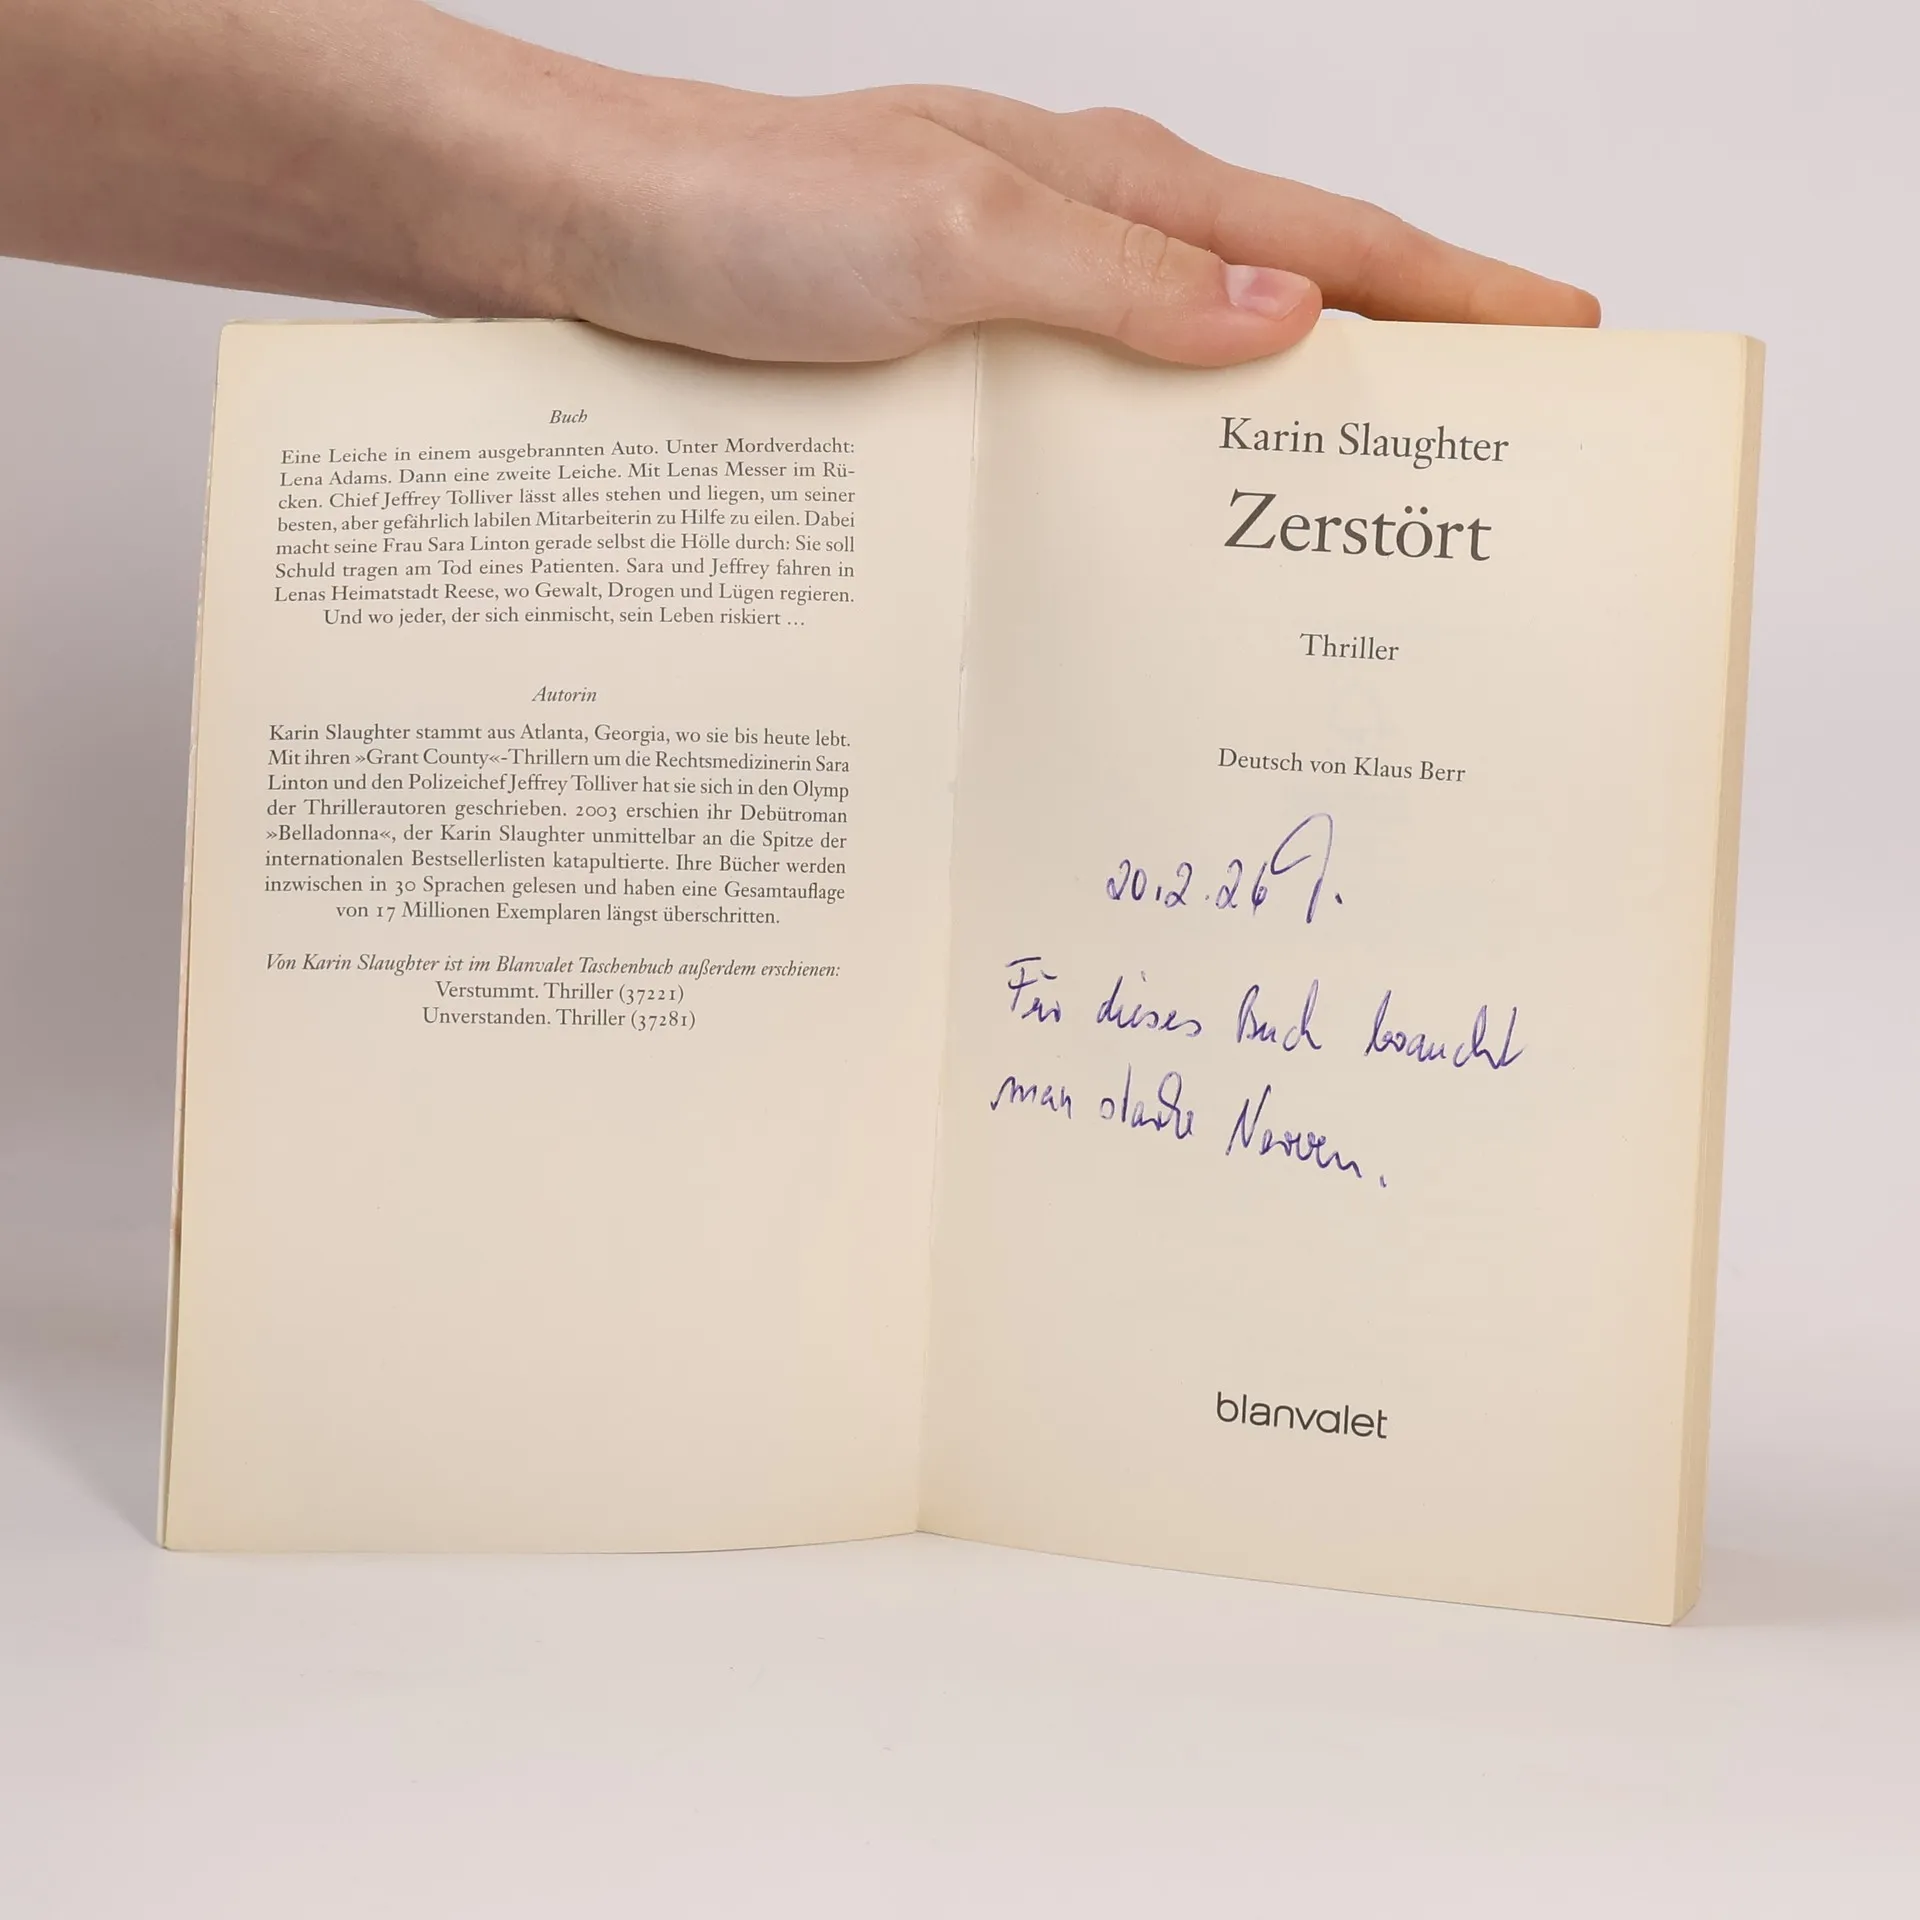 Buch
Eine Leiche in einem ausgebrannten Auto. Unter Mordverdacht:
Lena Adams. Dann eine zweite Leiche. Mit Lenas Messer im Rü-
cken. Chief Jeffrey Tolliver lässt alles stehen und liegen, um seiner
besten, aber gefährlich labilen Mitarbeiterin zu Hilfe zu eilen. Dabei
macht seine Frau Sara Linton gerade selbst die Hölle durch: Sie soll
Schuld tragen am Tod eines Patienten. Sara und Jeffrey fahren in
Lenas Heimatstadt Reese, wo Gewalt, Drogen und Lügen regieren.
Und wo jeder, der sich einmischt, sein Leben riskiert …
Autorin
Karin Slaughter stammt aus Atlanta, Georgia, wo sie bis heute lebt.
Mit ihren »Grant County«-Thrillern um die Rechtsmedizinerin Sara
Linton und den Polizeichef Jeffrey Tolliver hat sie sich in den Olymp
der Thrillerautoren geschrieben. 2003 erschien ihr Debütroman
»Belladonna«, der Karin Slaughter unmittelbar an die Spitze der
internationalen Bestsellerlisten katapultierte. Ihre Bücher werden
inzwischen in 30 Sprachen gelesen und haben eine Gesamtauflage
von 17 Millionen Exemplaren längst überschritten.
Von Karin Slaughter ist im Blanvalet Taschenbuch außerdem erschienen:
Verstummt. Thriller (37221)
Unverstanden. Thriller (37281)
Karin Slaughter
Zerstört
Thriller
Deutsch von Klaus Berr
20.2.26
Für dieses Buch braucht
man starke Nerven.
blanvalet